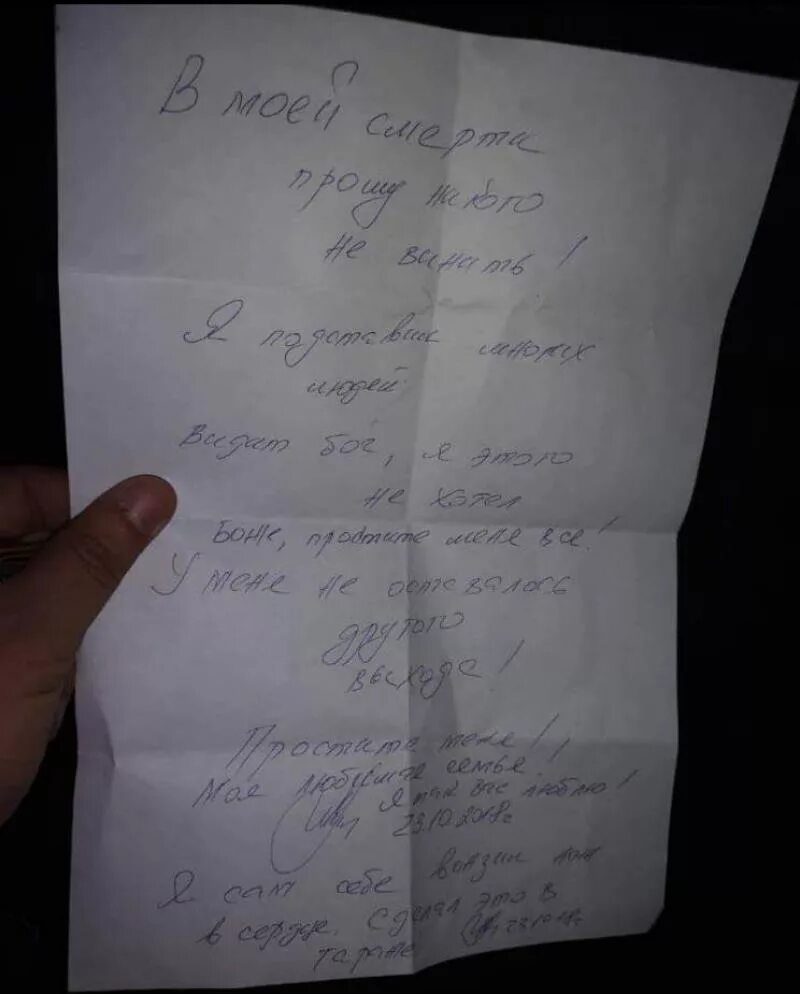 В моей смерти
прошу никого
не винить!
Я подставил многих
людей
Видит бог, я этого
не хотел
Боже, простите меня все!
У меня не оставалось
другого
выхода!
Простите меня!
Моя любимая семья
Я так вас люблю!
23.10.2018г
Я сам себе вонзил нож
в сердце. Сделал это в